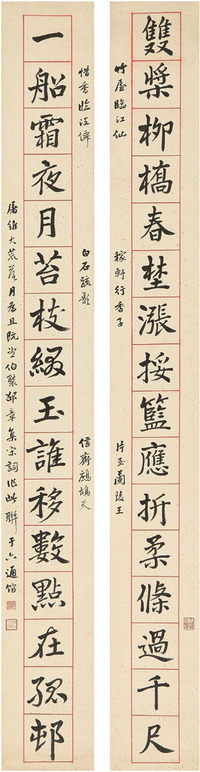 雙槳柳橋春埜漲挼籃應折柔條過千尺
竹屋臨江仙
稼軒行香子
片玉蘭陵王
惜香臨江僊
白石疏影
信齋鷓鴣天
一船霜夜月苔枝綴玉誰移數點在孤邨
屠維大荒落月為且邵章集宋詞作此聯于六通館